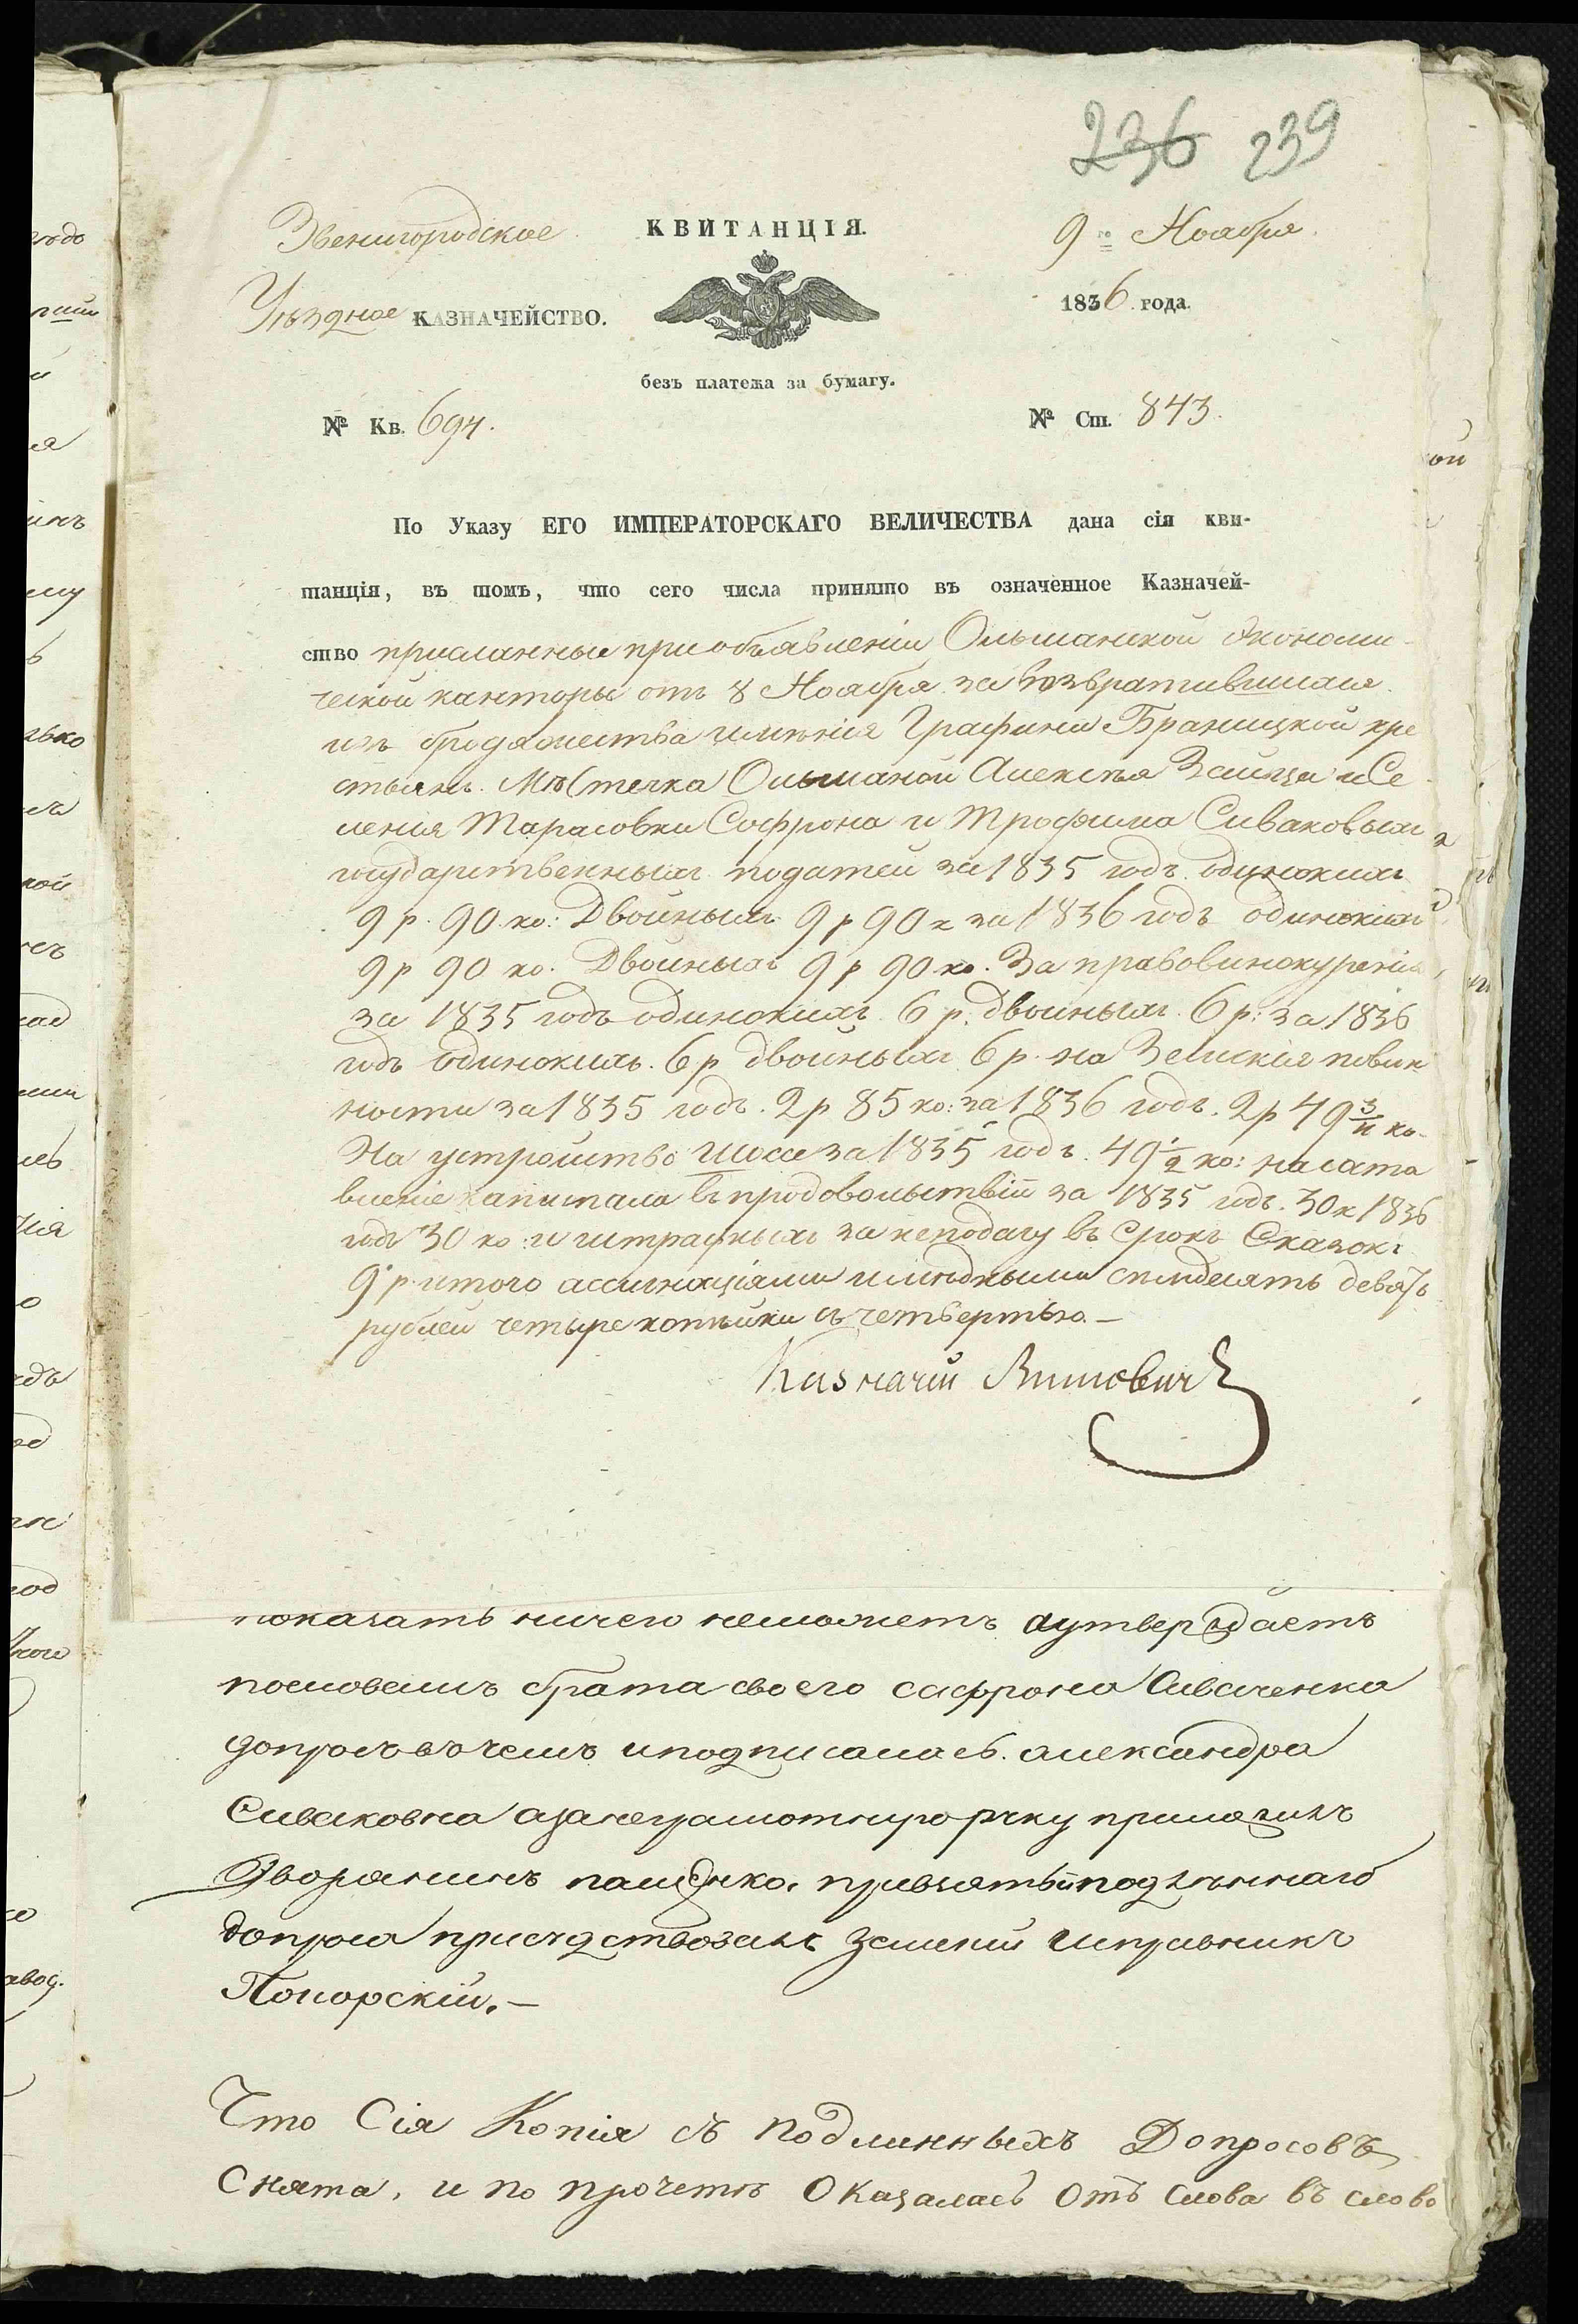 236 239
Звенигородское КВИТАНЦІЯ. 9го Ноября
Уѣздное КАЗНАЧЕЙСТВО. 1836 года.
безъ платежа за бумагу.
№ Кв. 694. № Ст. 843.
По Указу ЕГО ИМПЕРАТОРСКАГО ВЕЛИЧЕСТВА дана сія кви-
танція, въ томъ, что сего числа принято въ означенное Казначей-
ство присланные при объявленіи Ольшанской Экономи-
ческой канторы отъ 8 Ноября за возвратившихся
изъ бродяжества имѣнія Графини Браницкой кре
стьянъ. Мѣстечка Ольшаной Алексѣя Зайца и Се
ленія Тарасовки Софрона и Трофима Сиваковыхъ
государственныхъ податей за 1835 годъ одинокихъ
9 р. 90 ко: Двойныхъ 9 р 90 к за 1836 годъ одинокихъ
9 р 90 ко. Двойныхъ 9 р 90 ко. За право винокуренія
за 1835 годъ одинокихъ 6 р. двойныхъ 6 р: за 1836
годъ одинокихъ. 6 р двойныхъ 6 р. на Земскія повин
ности за 1835 годъ. 2 р 85 ко: за 1836 годъ. 2 р 49 3/4 ко.
На устройство шоссе за 1835 годъ. 49 1/2 ко: на соста
вленіе капитала въ продовольствіи за 1835 годъ. 30 к 1836
годъ 30 ко и штрафныхъ за неподачу въ срокъ Сказокъ
9 р. итого ассигнаціями и мѣдными семдесятъ девять
рублей четыре копѣйки съ четвертью.—
Казначей
показать ничего неможетъ аутверждаетъ
пословамъ брата своего сафрона Сиваченка
допросъ вочемъ иподписалась. александра
Сиваковна азанеграмотную руку приложилъ
Дворянинъ пащенко. привзятьи подлиннаго
допроса присудствовалъ земскій исправникъ
Погорскій.—
Что Сія Копія съ подлинныхъ Допросовъ
Снята, и по прочетѣ Оказалась Отъ Слова въ слово